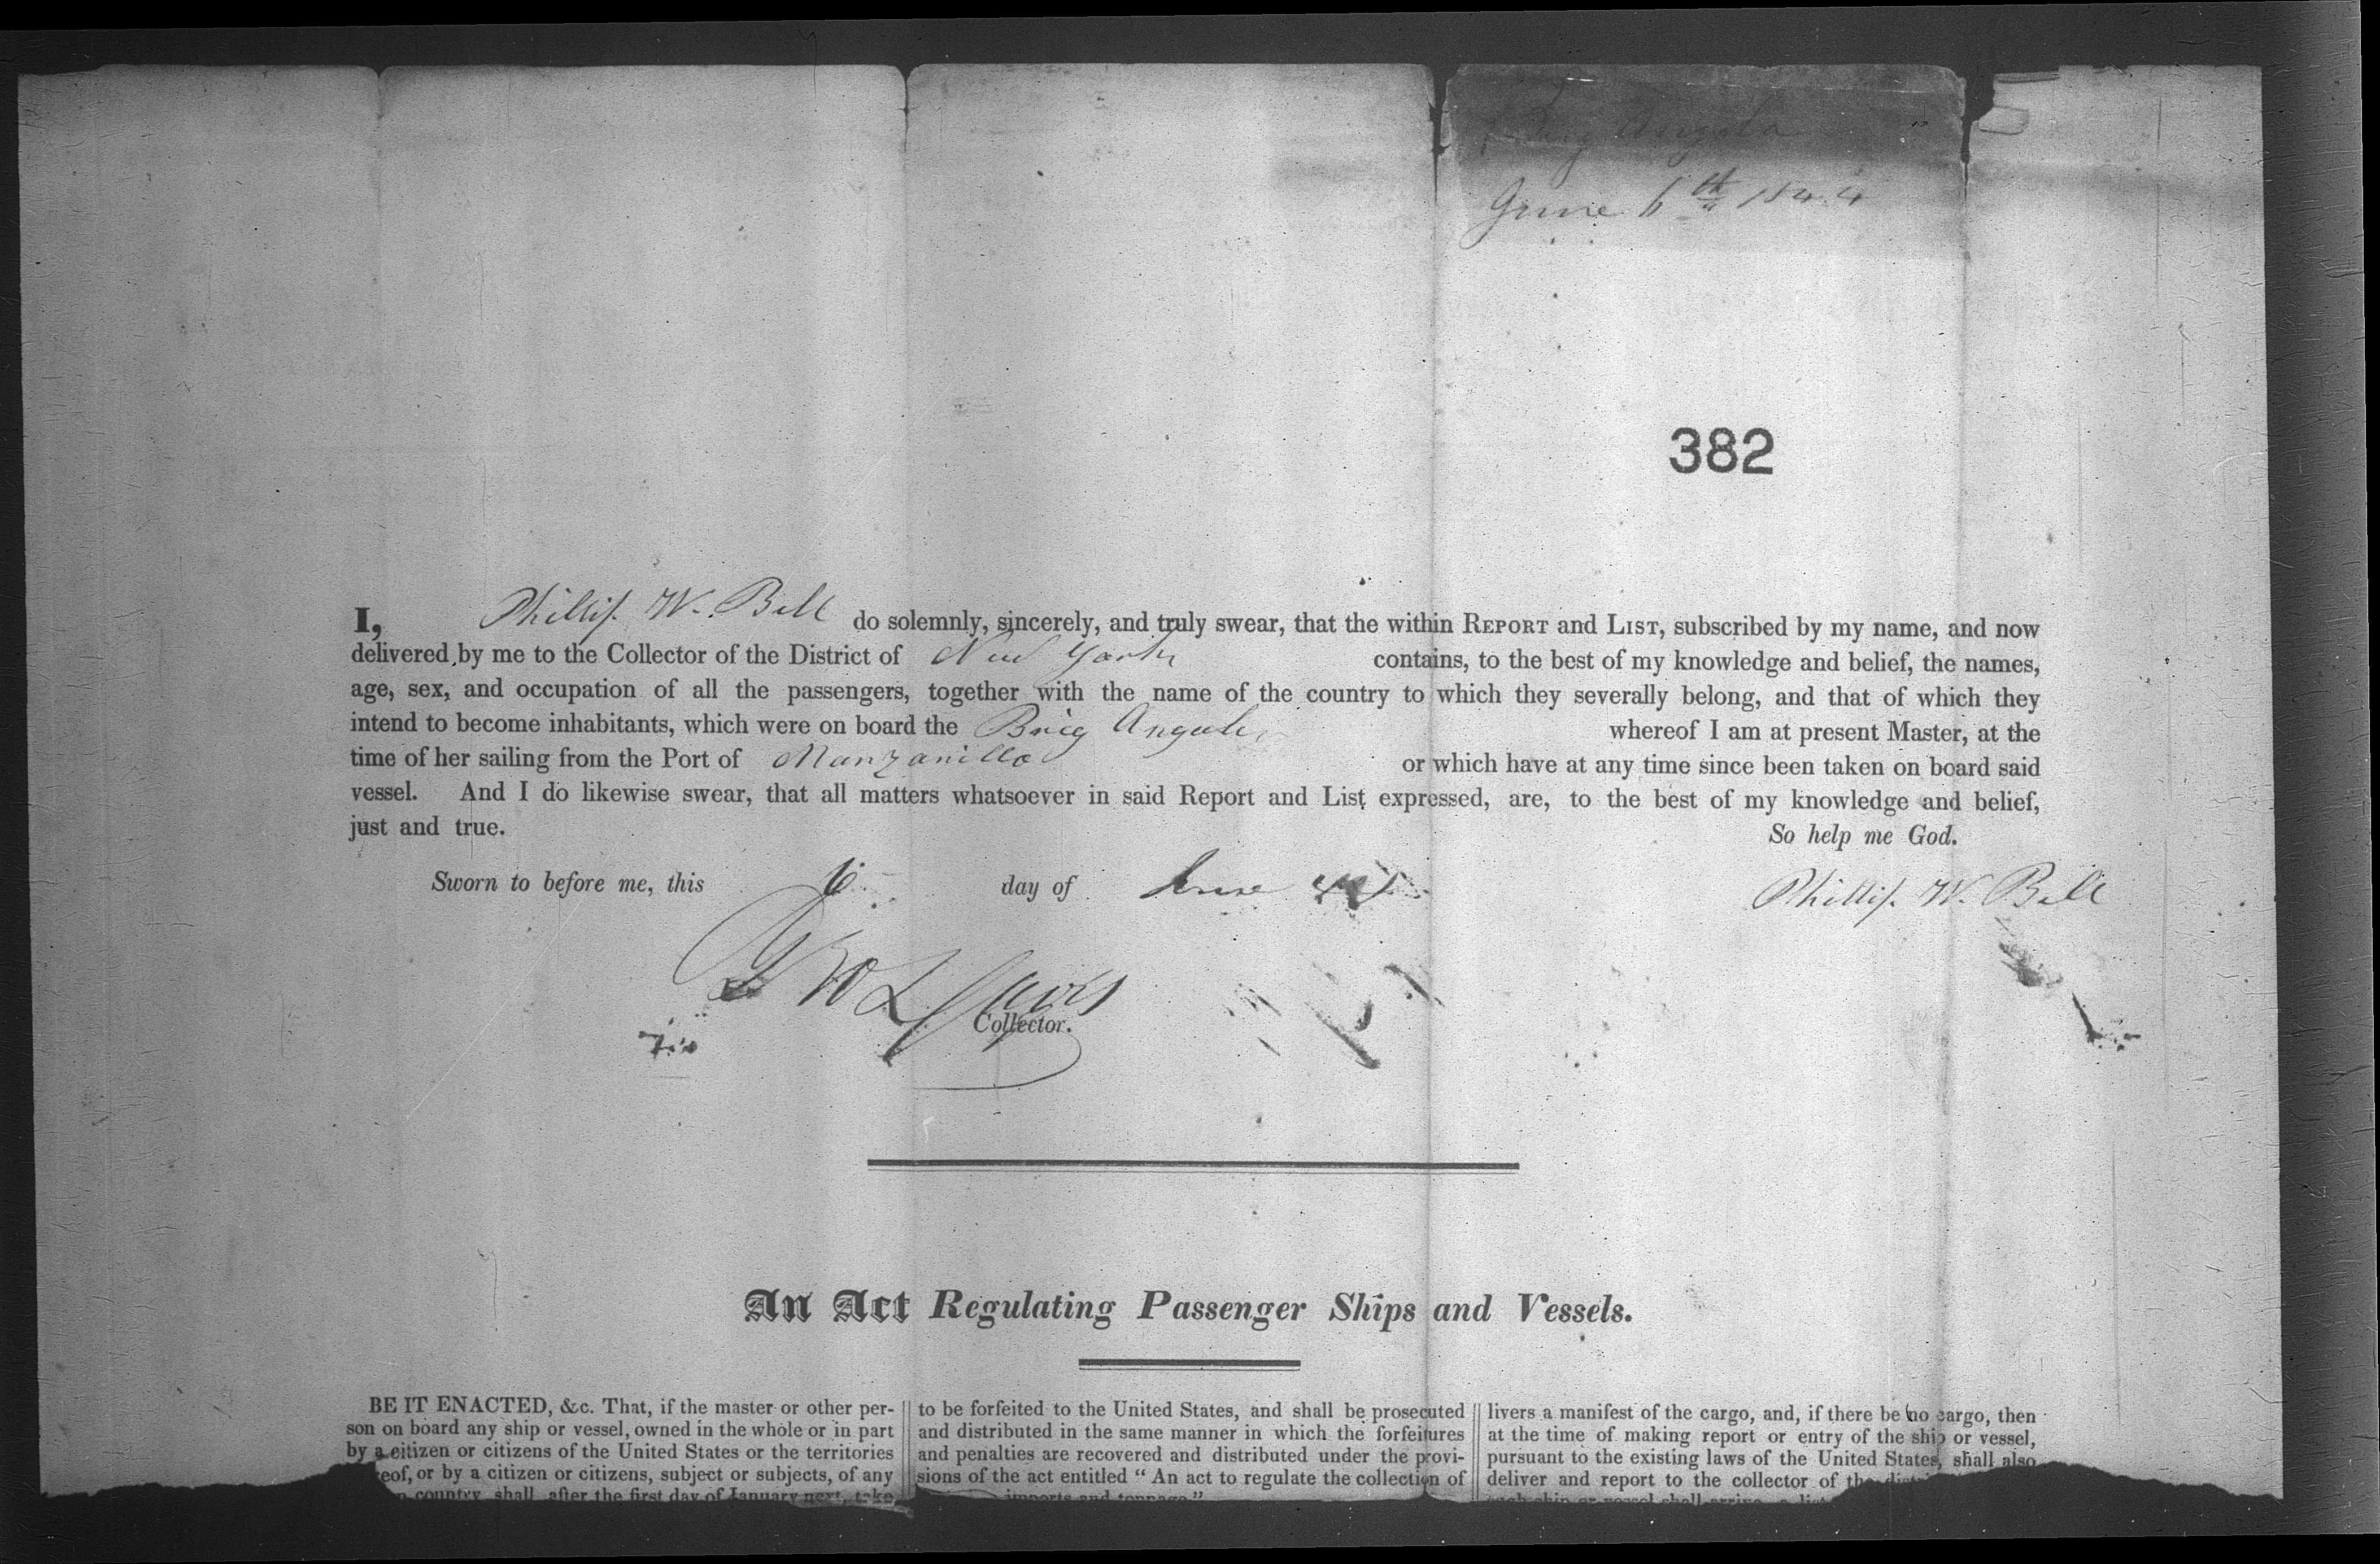 Brig Angola
June 6th 1844
382
I, Phillip. W. Bell do solemnly, sincerely, and truly swear, that the within REPORT and LIST, subscribed by my name, and now
delivered by me to the Collector of the District of New York contains, to the best of my knowledge and belief, the names,
age, sex, and occupation of all the passengers, together with the name of the country to which they severally belong, and that of which they
intend to become inhabitants, which were on board the Brig Angola whereof I am at present Master, at the
time of her sailing from the Port of Manzanillo or which have at any time since been taken on board said
vessel. And I do likewise swear, that all matters whatsoever in said Report and List expressed, are, to the best of my knowledge and belief,
just and true. So help me God.
Sworn to before me, this 6 day of June 44 Phillip. W. Bell
Collector.
An Act Regulating Passenger Ships and Vessels.
BE IT ENACTED, &c. That, if the master or other per-
son on board any ship or vessel, owned in the whole or in part
by a citizen or citizens of the United States or the territories
eof, or by a citizen or citizens, subject or subjects, of any
country, shall, after the first day of January next, take
to be forfeited to the United States, and shall be prosecuted
and distributed in the same manner in which the forfeitures
and penalties are recovered and distributed under the provi-
sions of the act entitled “ An act to regulate the collection of
imports and tonnage.”
livers a manifest of the cargo, and, if there be no cargo, then
at the time of making report or entry of the ship or vessel,
pursuant to the existing laws of the United States, shall also
deliver and report to the collector of the
such ship or vessel shall arrive, a list